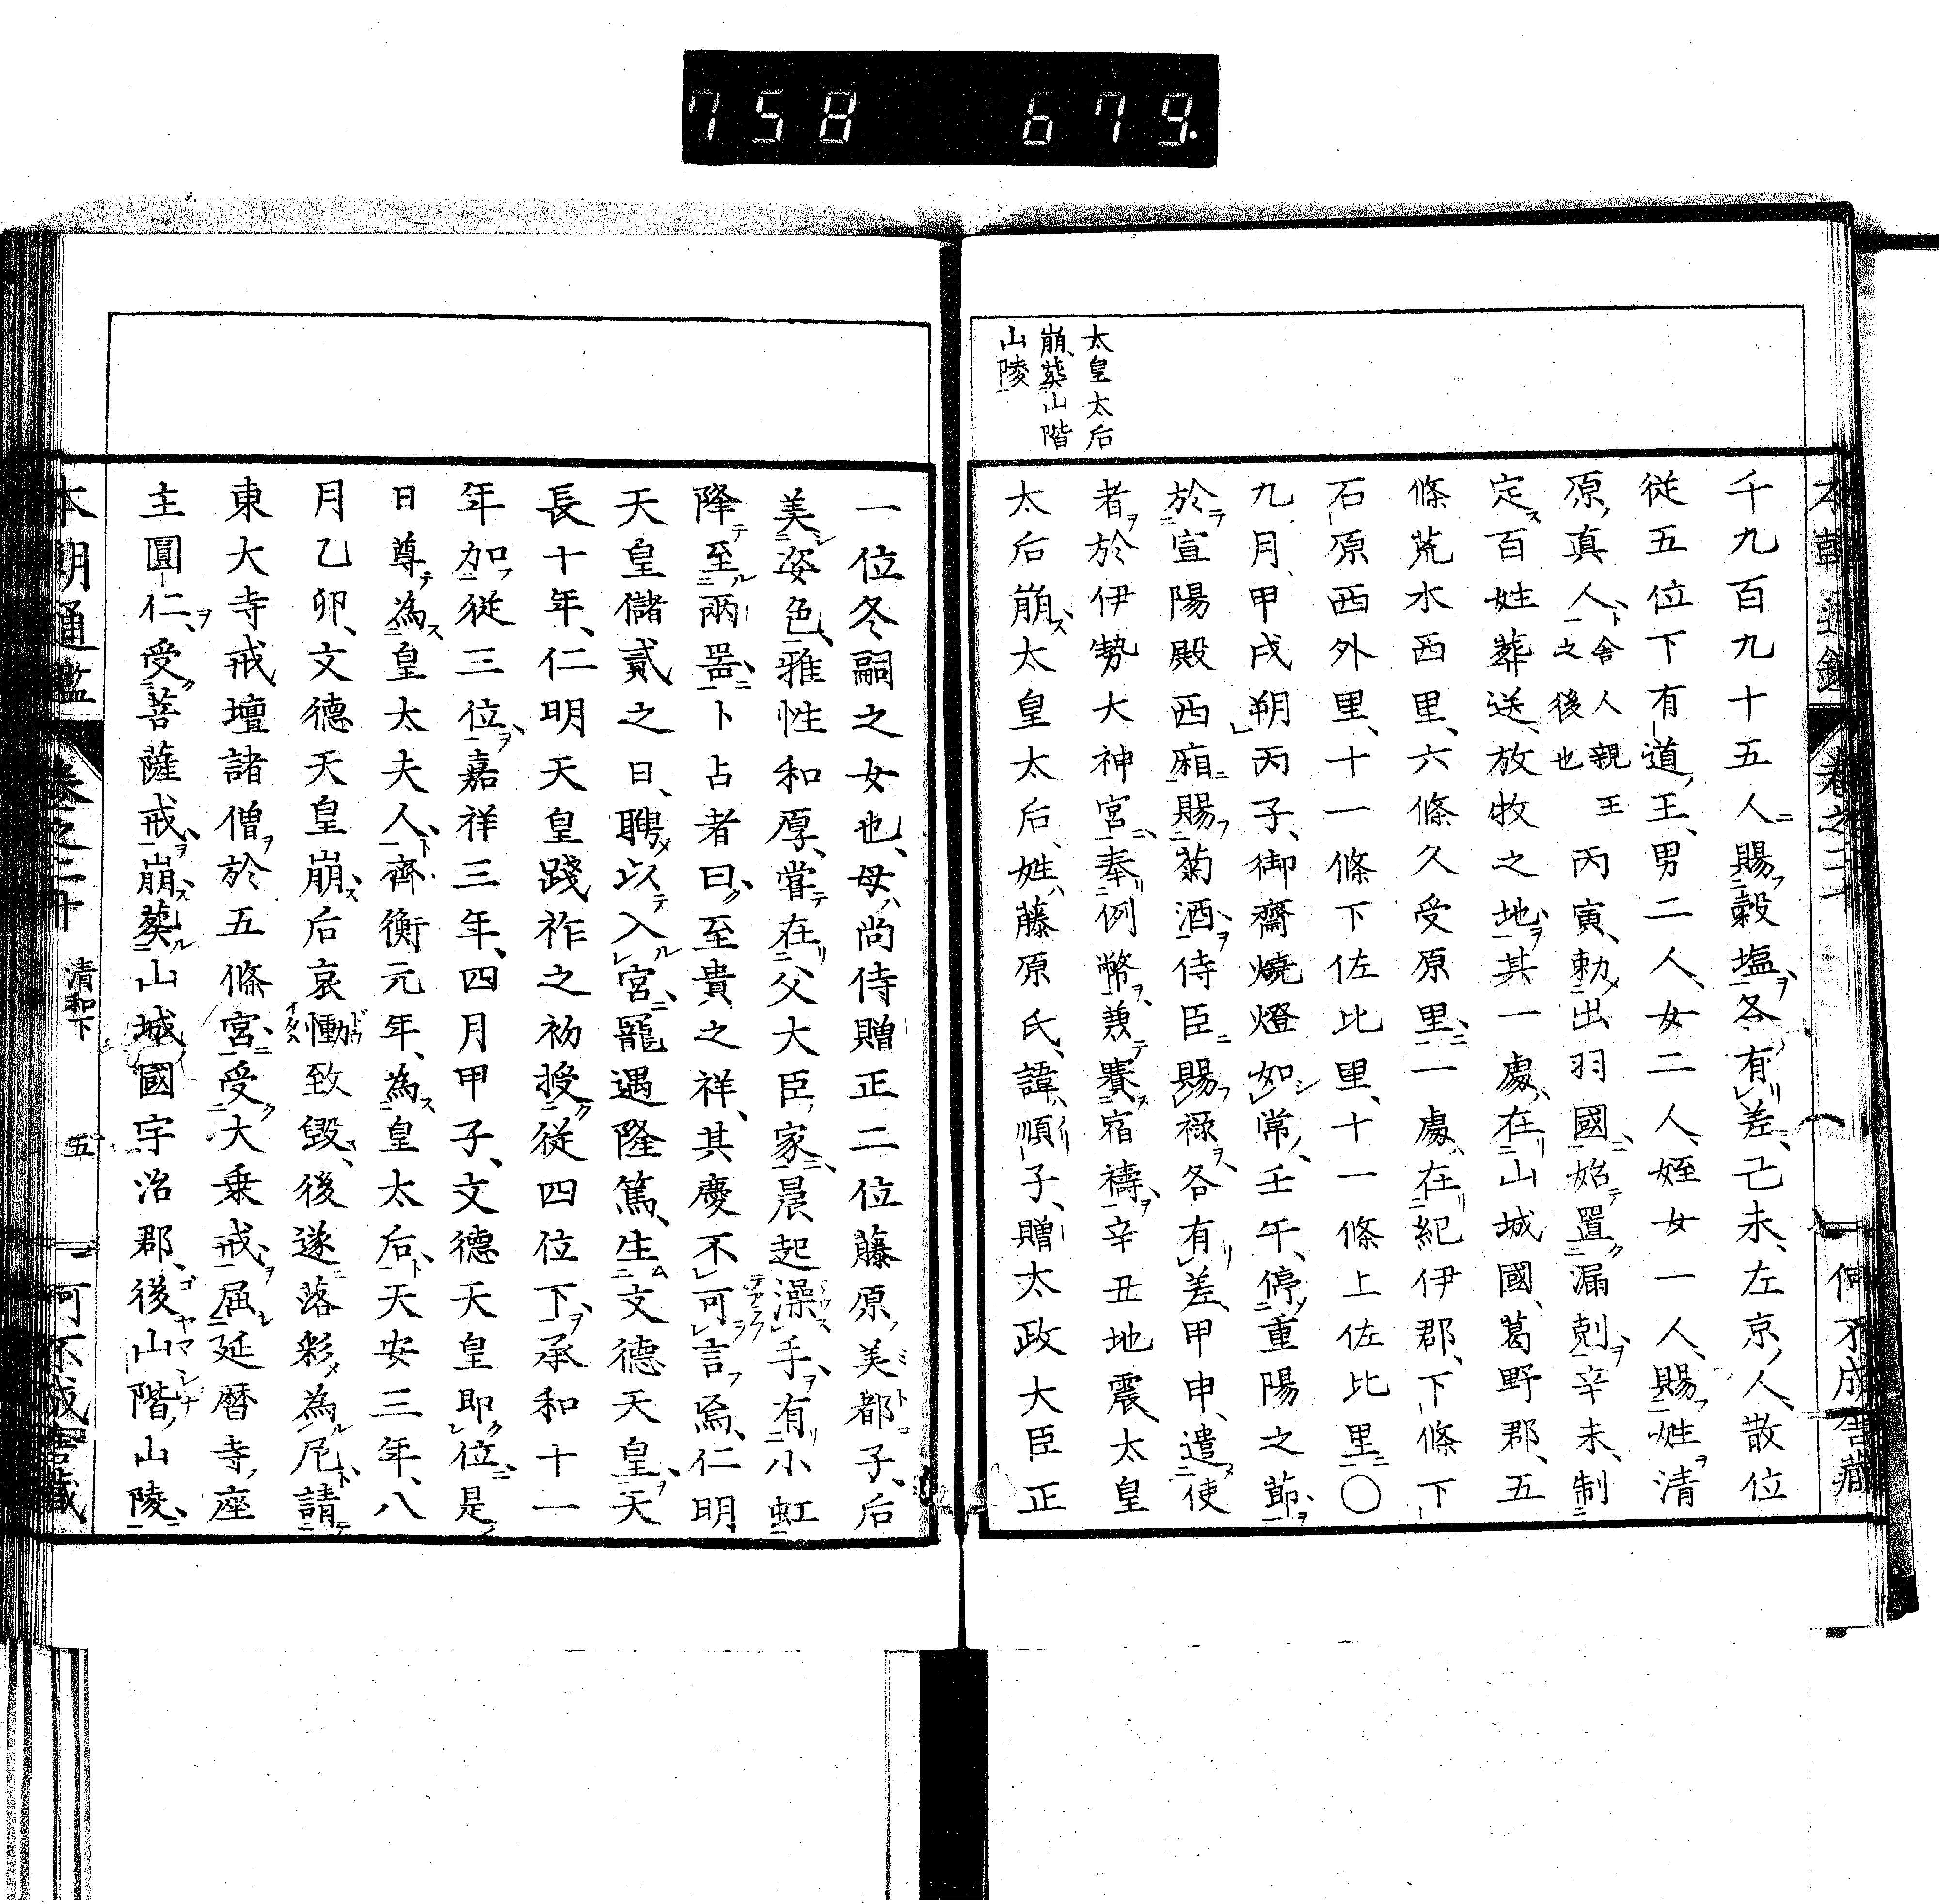 758 679.
太皇太后
崩葬山階
山陵
千九百九十五人賜穀塩各有差己未左京人散位
従五位下有道王男二人女二人姪女一人賜姓清
原真人舎人親王之後也丙寅勅出羽國始置漏剋辛未制
定百姓葬送放牧之地其一處在山城國葛野郡五
條荒水西里六條久受原里一處在紀伊郡下條下
石原西外里十一條下佐比里十一條上佐比里〇
九月甲戌朔丙子御齋燒燈如常壬午停重陽之節
於宣陽殿西廂賜菊酒侍臣賜禄各有差甲申遣使
者於伊勢大神宮奉例幣兼賽宿禱辛丑地震太皇
太后崩太皇太后姓藤原氏諱順子贈太政大臣正
一位冬嗣之女也母尚侍贈正二位藤原美都子后
美姿色雅性和厚嘗在父大臣家晨起澡手有小虹
降至兩器卜占者曰至貴之祥其慶不可言焉仁明
天皇儲貳之日聘以入宮寵遇隆篤生文德天皇天
長十年仁明天皇踐祚之初授従四位下承和十一
年加従三位嘉祥三年四月甲子文德天皇即位是
日尊為皇太夫人齊衡元年為皇太后天安三年八
月乙卯文德天皇崩后哀慟致毀後遂落彩為尼請
東大寺戒壇諸僧於五條宮受大乗戒屈延暦寺座
主圓仁受菩薩戒崩葬山城國宇治郡後山階山陵
本朝通鑑 卷之二十 清和下 五